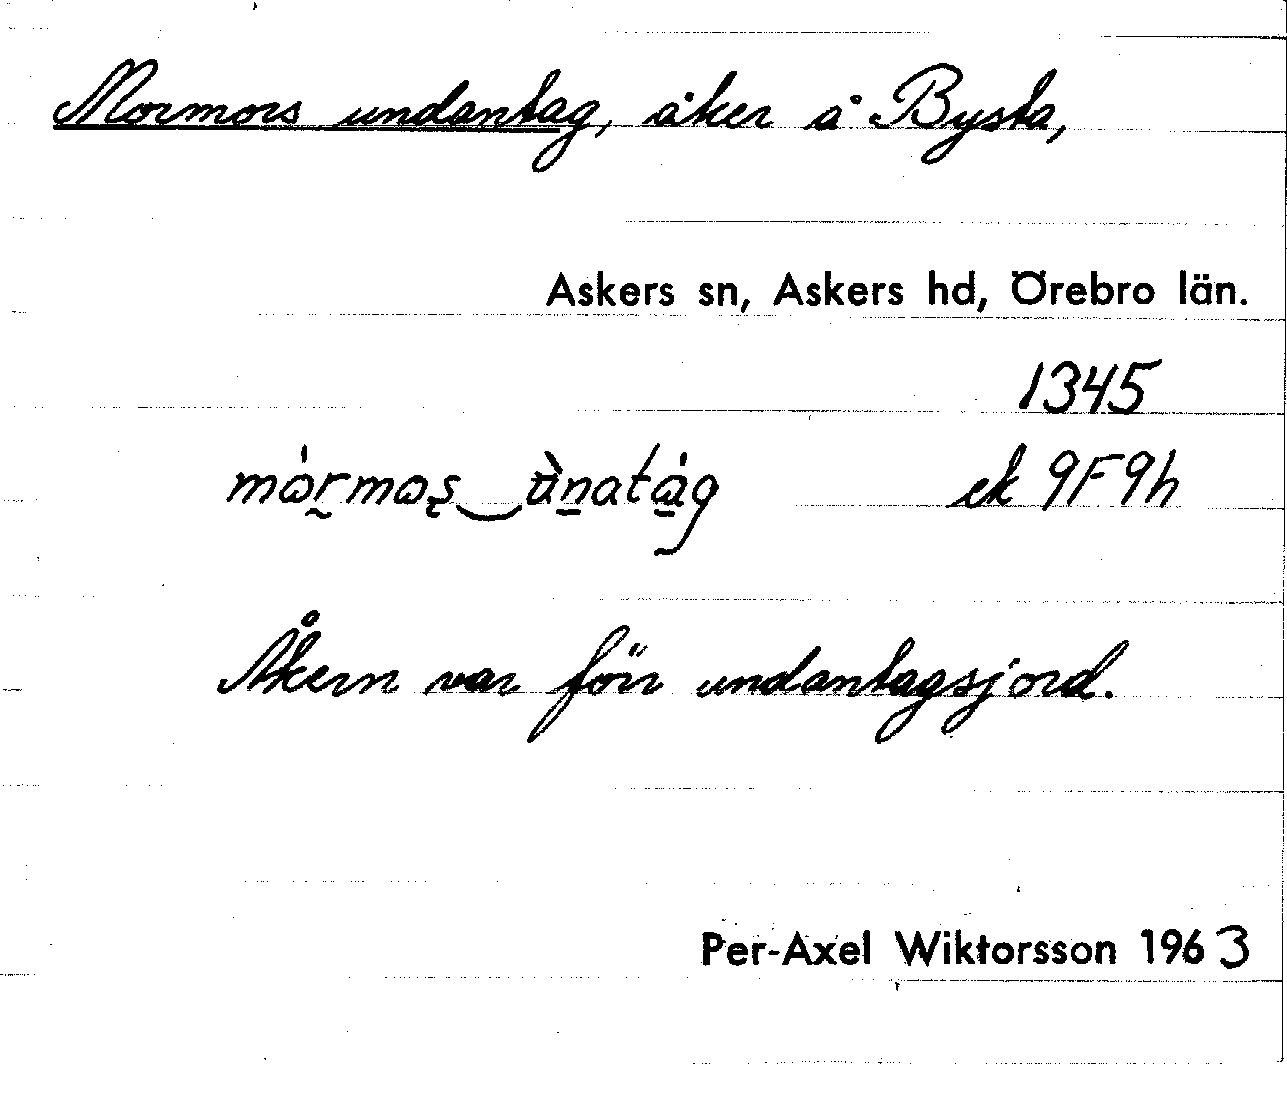 Mormors undantag, åker å Bysta,
Askers sn, Askers hd, Örebro län.
1345
ek 9F9h
Åkern var förr undantagsjord.
Per-Axel Wiktorsson 1963